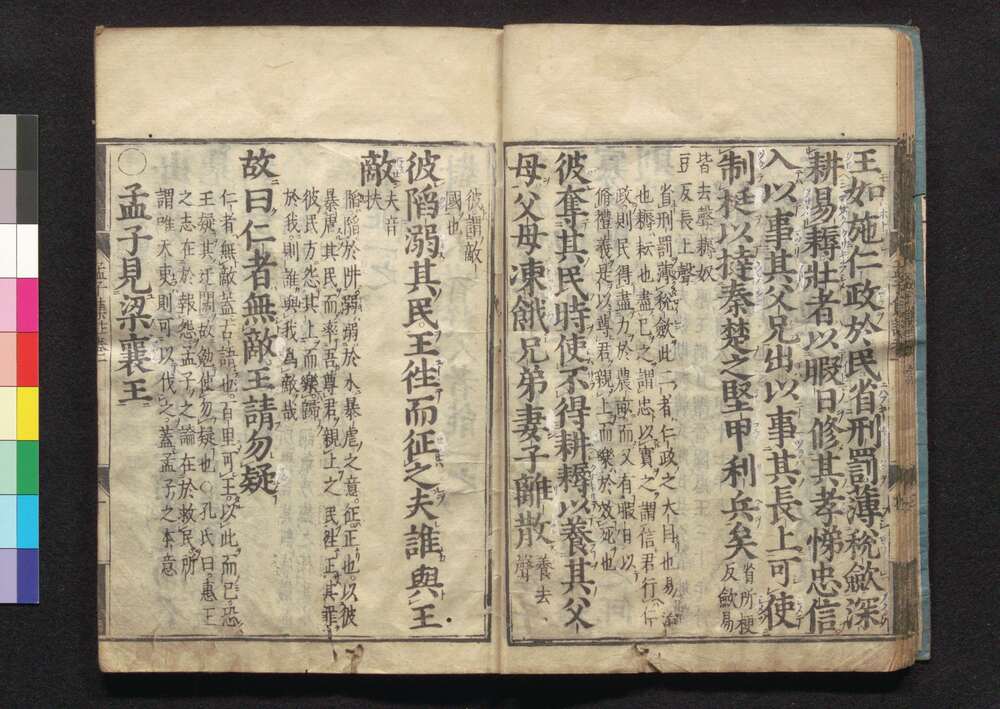 王如施仁政於民省刑罰薄稅歛深
耕易耨壯者以暇日修其孝悌忠信
入以事其父兄出以事其長上可使
制梃以撻秦楚之堅甲利兵矣
省所梗
反歛易
皆去聲耨奴
豆反長上聲
省刑罰薄稅歛此二者仁政之大目也易治
也耨耘也盡已之謂忠以實之謂信君行仁
政則民得盡力於農畝而又有暇日以
脩禮義是以尊君親上而樂於效死也
彼奪其民時使不得耕耨以養其父
母父母凍餓兄弟妻子離散
養去
聲
彼謂敵
國也
彼陷溺其民王徃而征之夫誰與王
敵
夫音
扶
陷陷於阱溺溺於水暴虐之意征正也以彼
暴虐其民而率吾尊君親上之民徃正其罪
彼民方怨其上而樂歸
於我則誰與我為敵哉
故曰仁者無敵王請勿疑
仁者無敵蓋古語也百里可王以此而已恐
王疑其迂闊故勉使勿疑也○孔氏曰惠王
之志在於報怨孟子之論在於救民所
謂唯天吏則可以伐之蓋孟子之本意
○孟子見梁襄王